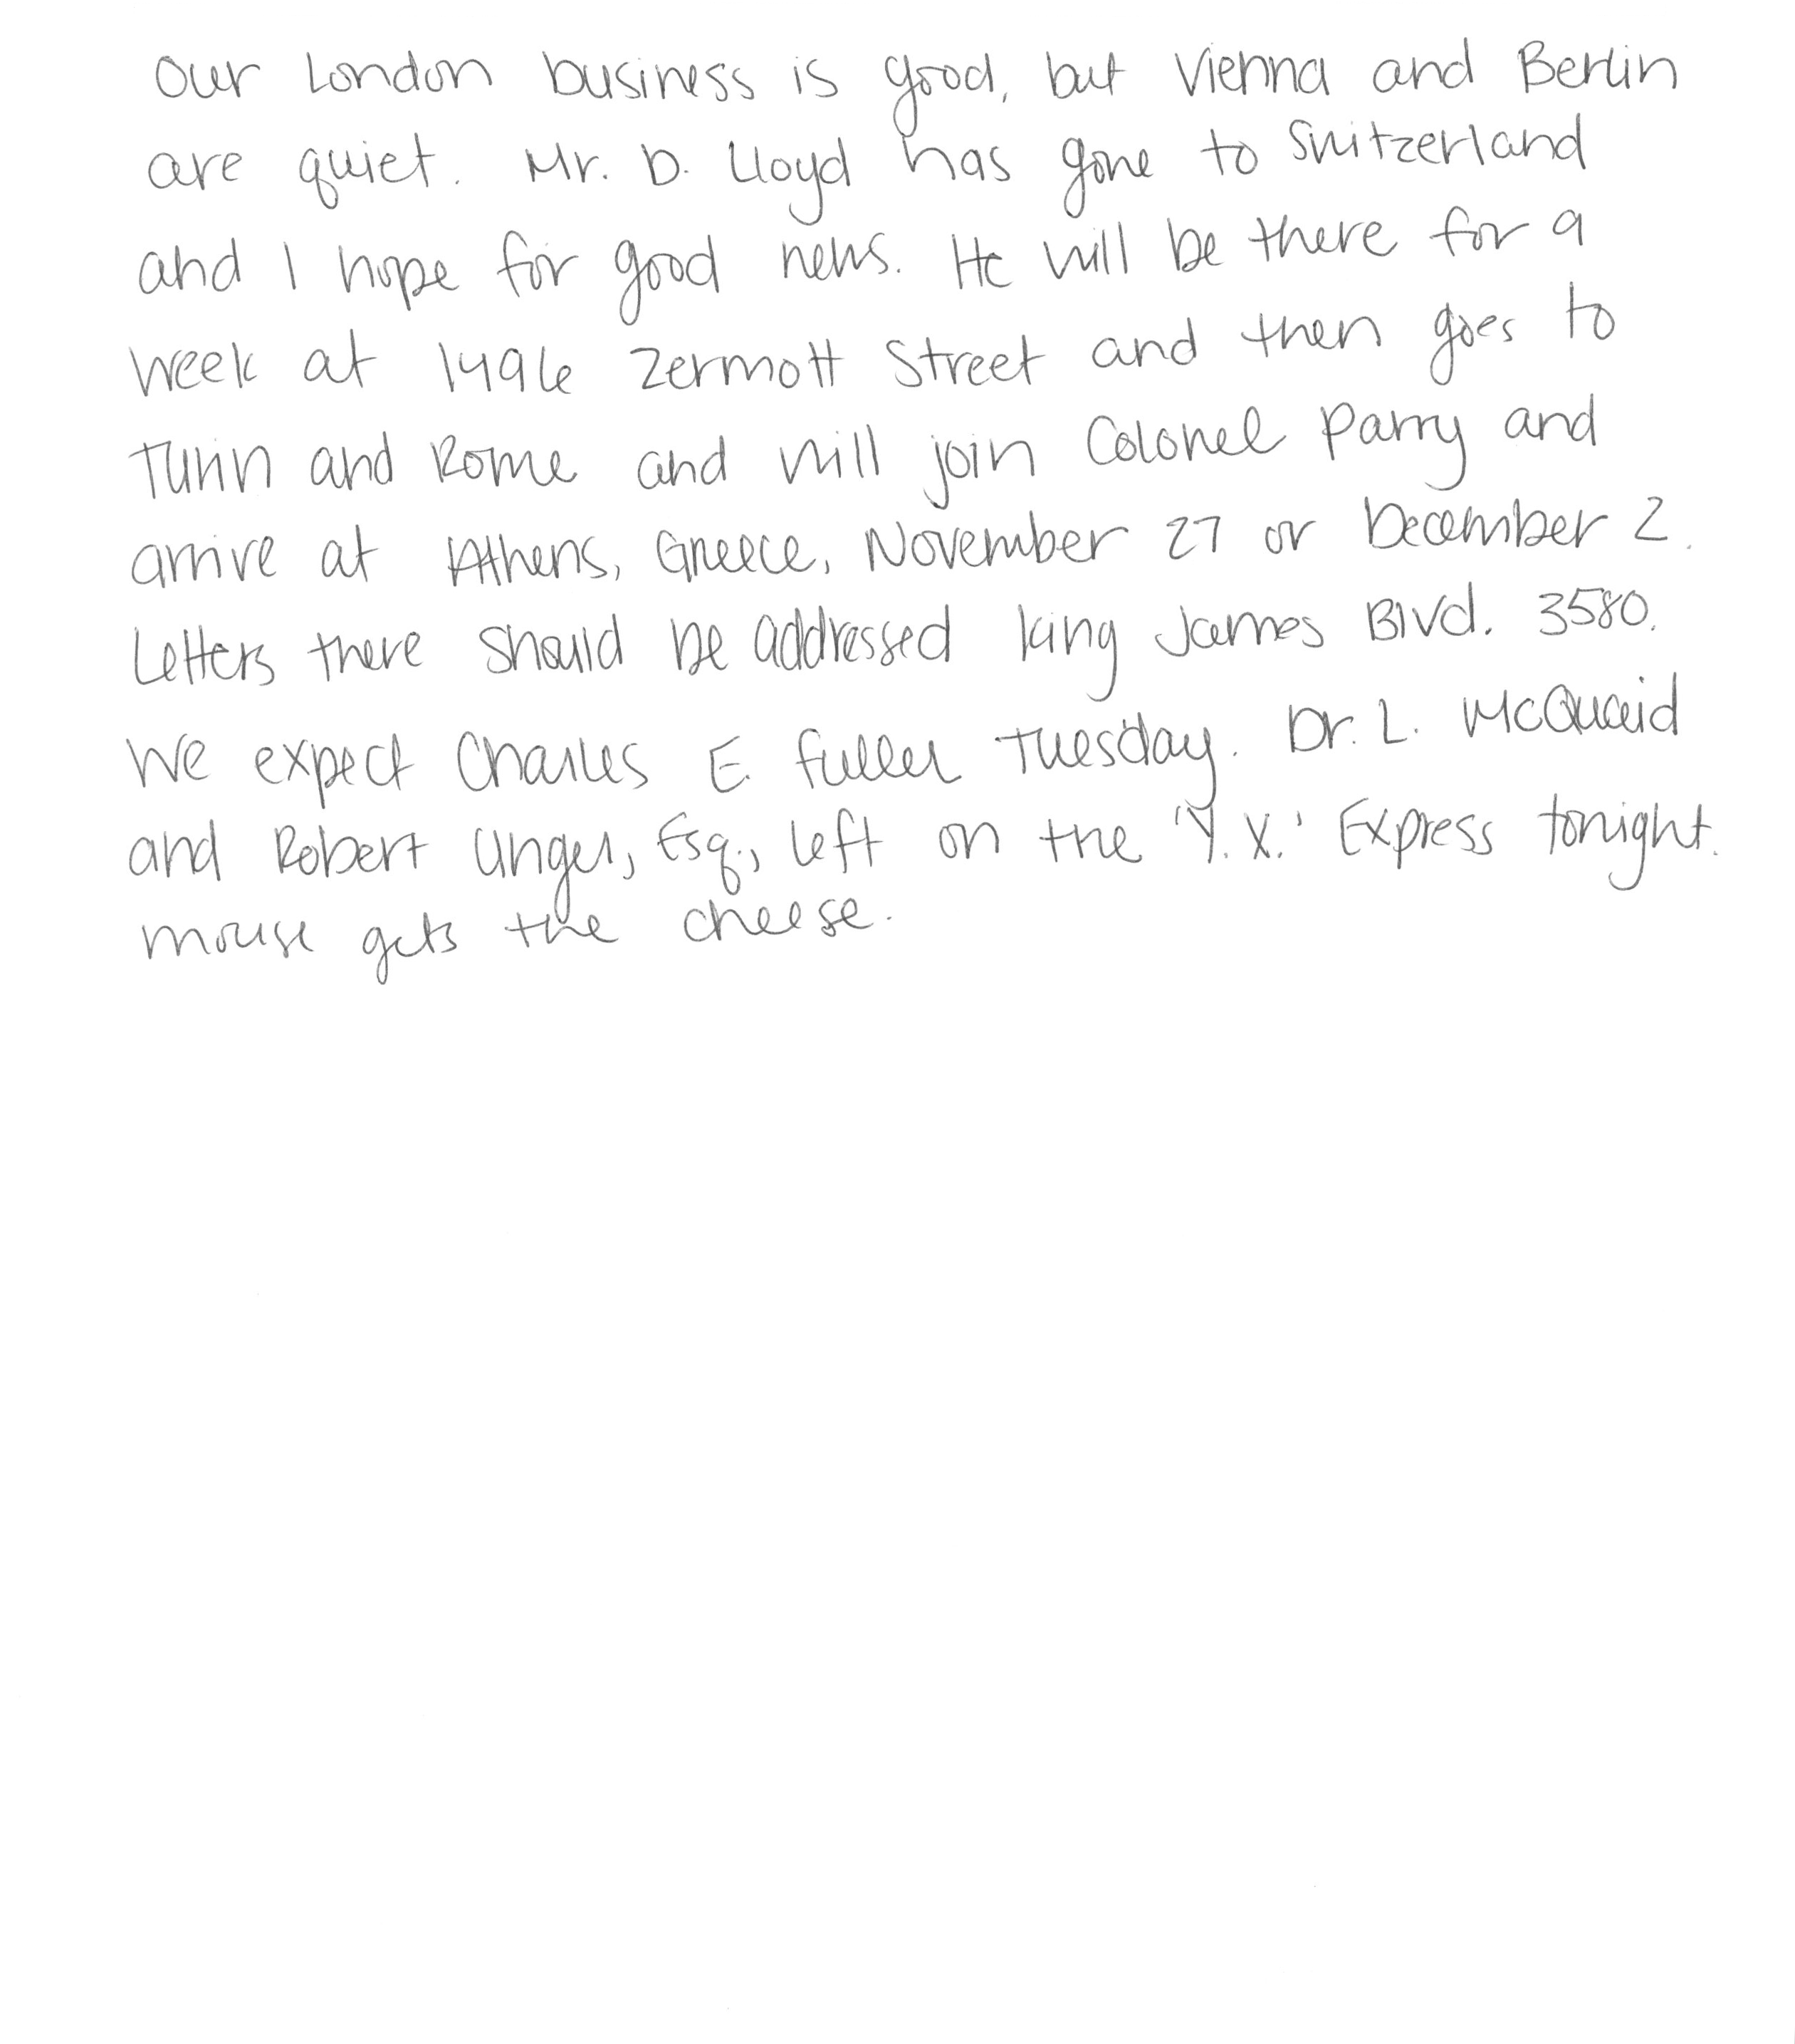 Our London business is good, but Vienna and Berlin
are quiet. Mr. D. Lloyd has gone to Switzerland
and I hope for good news. He will be there for a
week at 1496 Zermott Street and then goes to
Turin and Rome and will join Colonel Parry and
arrive at Athens, Greece, November 27 or December 2.
Letters there should be addressed King James Blvd. 3580.
We expect Charles E. Fuller Tuesday. Dr. L. McQuaid
and Robert Unger, Esq., left on the 'Y.X.' Express tonight.
mouse gets the cheese.